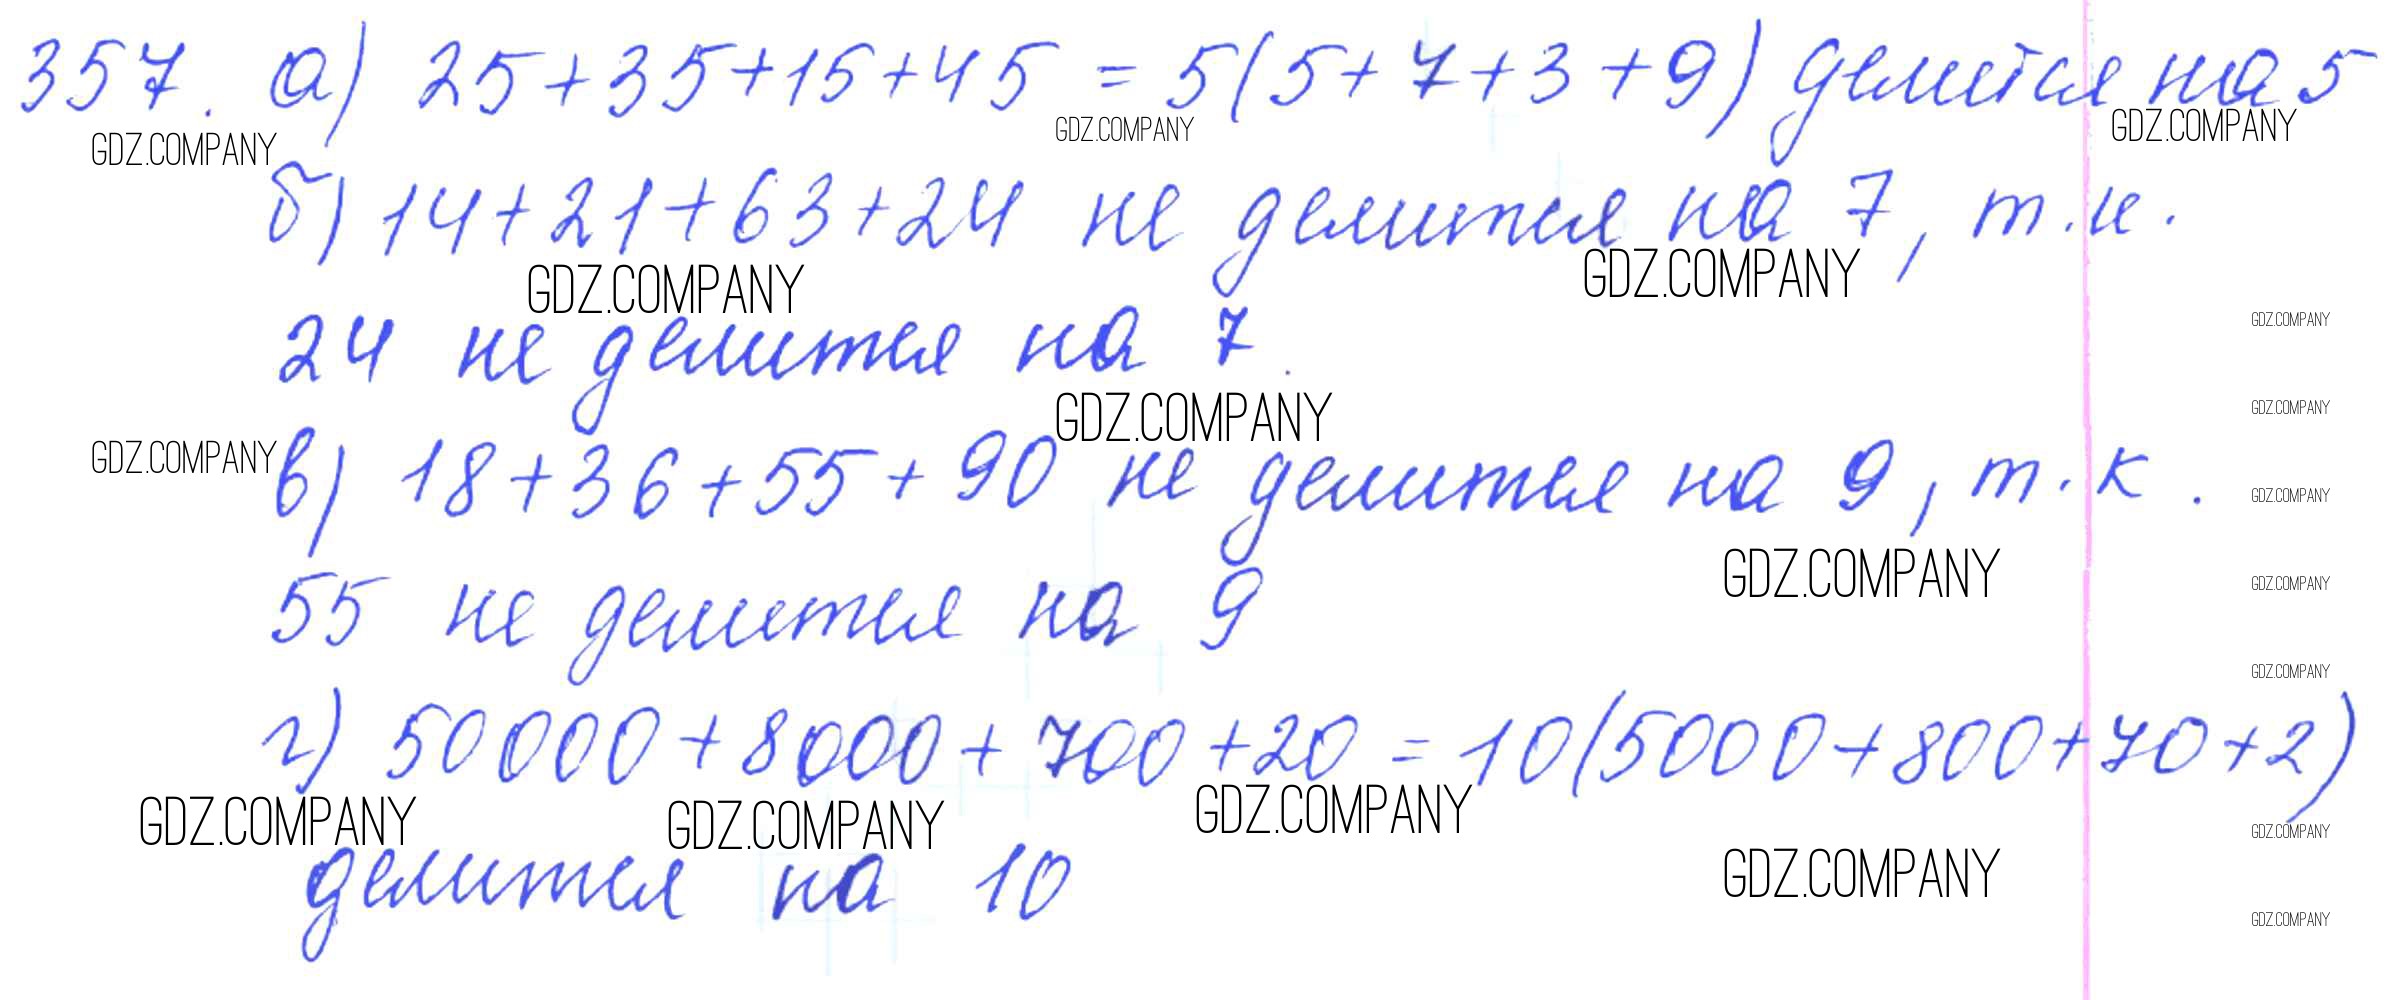 357. а) 25+35+15+45 = 5(5+7+3+9) делится на 5
GDZ.COMPANY GDZ.COMPANY GDZ.COMPANY
б) 14+21+63+24 не делится на 7, т.к.
GDZ.COMPANY GDZ.COMPANY
GDZ.COMPANY
24 не делится на 7.
GDZ.COMPANY GDZ.COMPANY
GDZ.COMPANY
в) 18+36+55+90 не делится на 9, т.к.
GDZ.COMPANY
GDZ.COMPANY GDZ.COMPANY
55 не делится на 9
GDZ.COMPANY
г) 50000+8000+700+20 = 10(5000+800+70+2)
GDZ.COMPANY GDZ.COMPANY GDZ.COMPANY GDZ.COMPANY
делится на 10
GDZ.COMPANY
GDZ.COMPANY